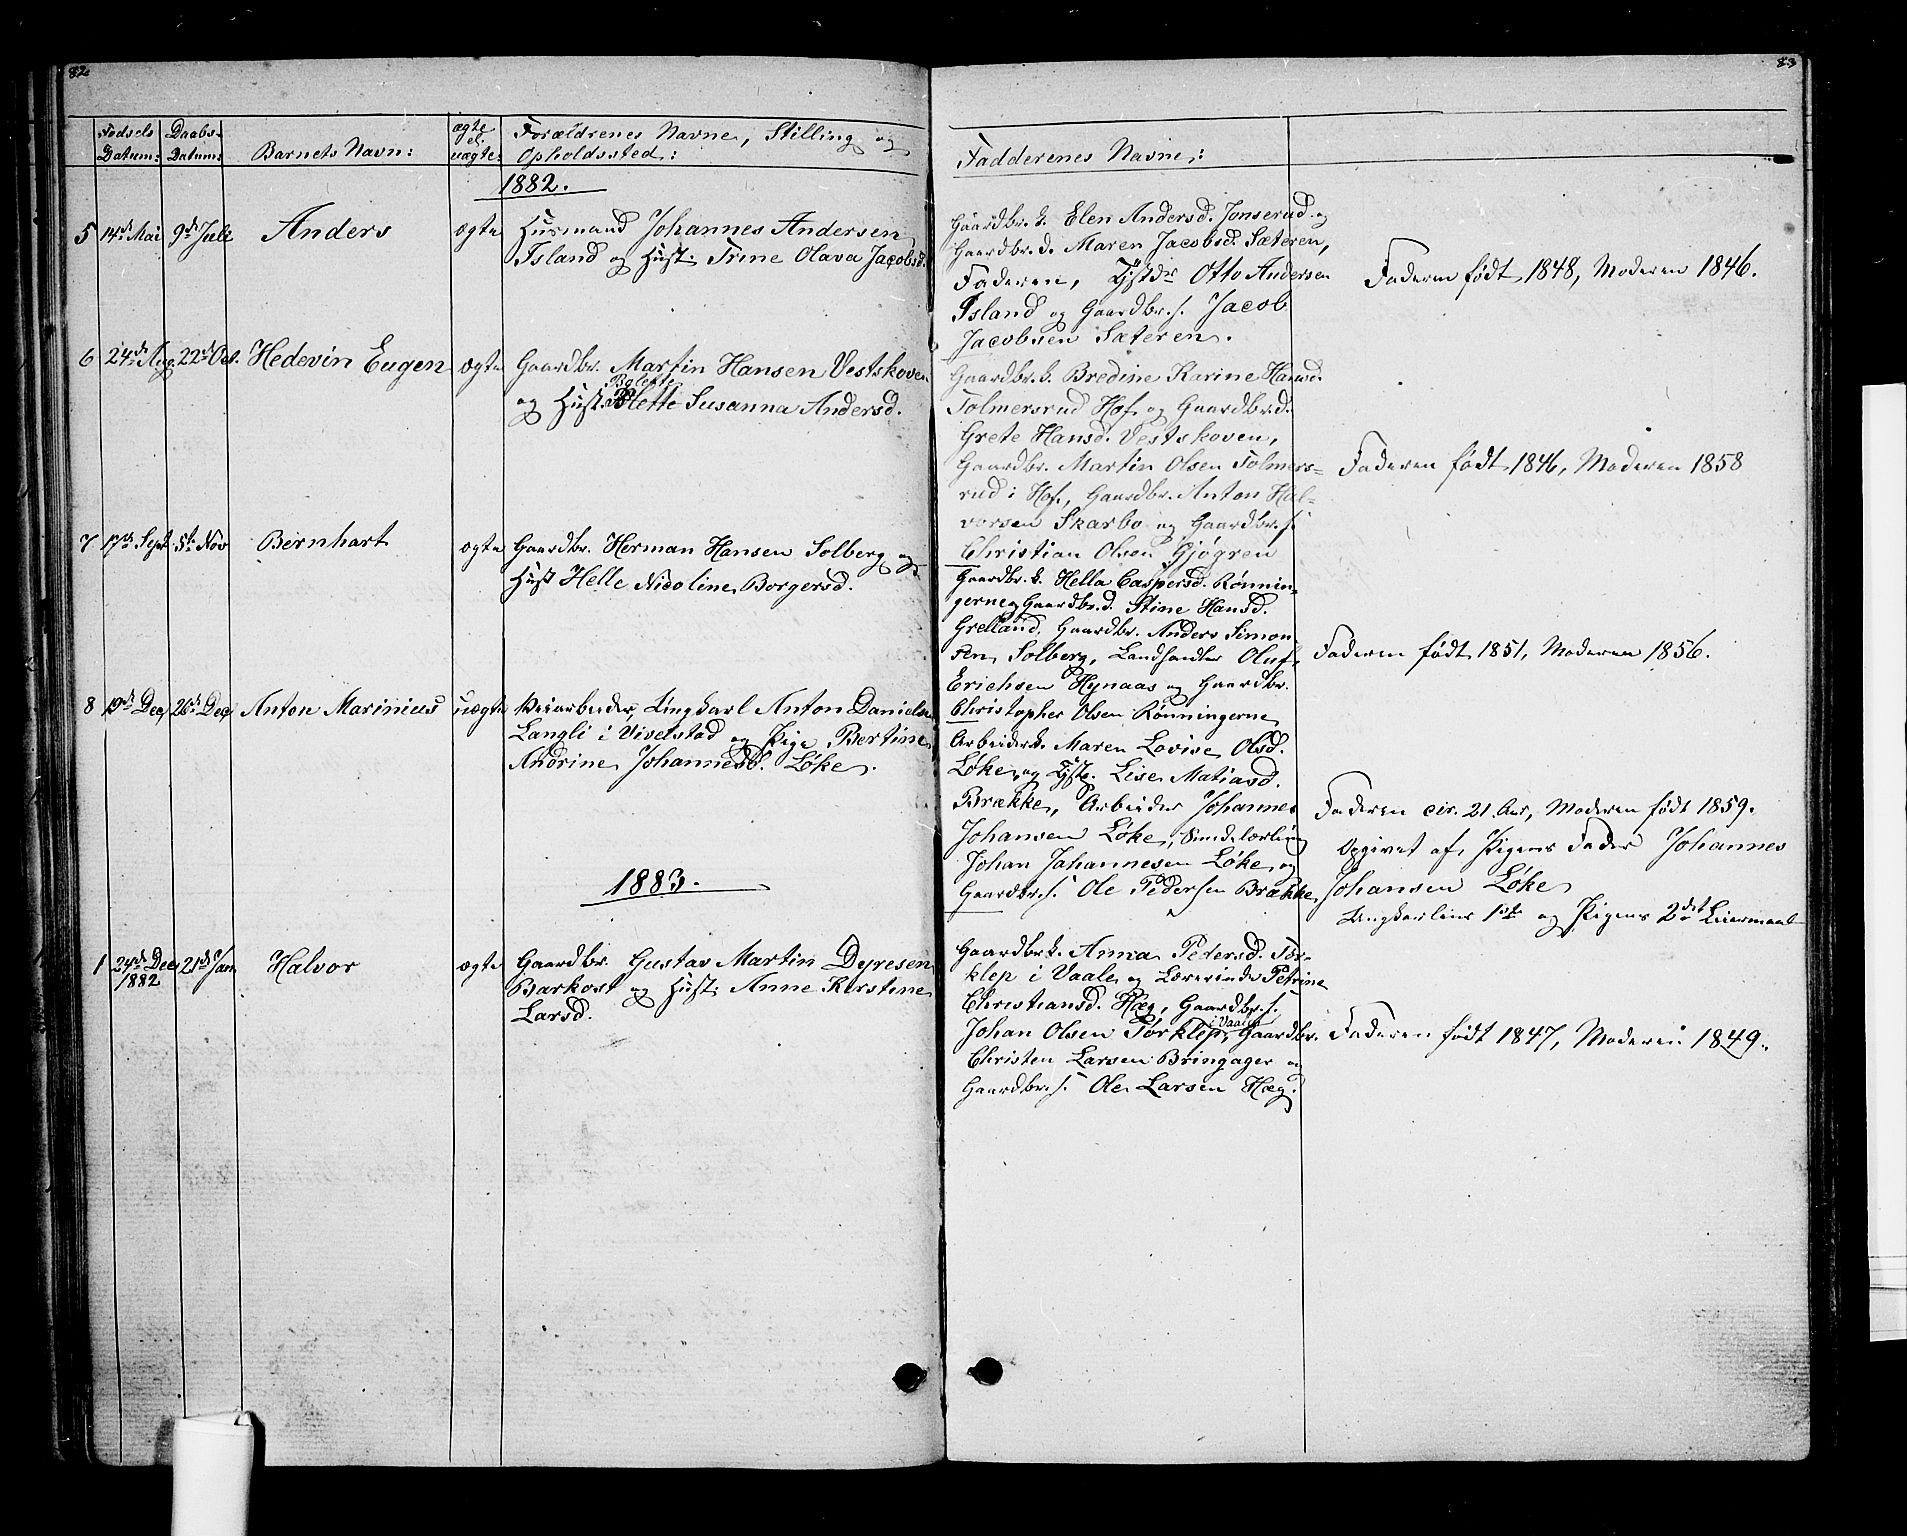 82
Fødsels Datum: Daabs- Datum: Barnets Navn: ægte el. uægte: Forældrenes Navne, Stilling og Opholdssted:
1882.
5 14de Mai 9de Juli Anders ægte Husmand Johannes Andersen
Island og Hust. Trine Olava Jacobsd.
6 24de Aug. 22de Oct. Hedevin Eugen ægte Gaardbr. Martin Hansen Vestskoven
og Hust. Susanna Andersd.
7 17de Sept 5te Nov Bernhart ægte Gaardbr. Herman Hansen Solberg og
Hust Helle Nicoline Borgersd.
8 19de Dec, 26de Dec Anton Marinius uægte Ungkarl Anton Daniels.
Langli i Vivelstad og Pige Bertine
Andrine Johannesd. Løke.
1883.
1 24de Dec 1882 21de Jan Halvor ægte Gaardbr. Gustav Martin Dyresen
Barkost og Hust. Anne Kirstine
Larsd.
83
Fadderenes Navne:
Gaardbr.k. Elen Andersd. Jonserud og
Gaardbr.d. Maren Jacobsd. Sæteren,
Faderen, Tjstdr Otto Andersen
Island og Gaardbr.s. Jacob
Jacobsen Sæteren.
Faderen født 1848, Moderen 1846.
Gaardbr.k. Bredine Karine Hansd.
Tolmersrud Hof og Gaardbr.d.
Grete Hansd. Vestskoven,
Gaardbr. Martin Olsen Tolmers-
rud i Hof, Gaardbr. Anton Hal-
vorsen Skarbo og Gaardbr.s.
Christian Olsen Gjøgren
Faderen født 1846, Moderen 1858
Gaardbr.k. Hella Caspersd. Rønnin-
gerne og Gaardbr.d. Stine Hansd.
Grelland, Gaardbr. Anders Simon
sen Solberg, Landhandler Oluf
Erichsen Hynaas og Gaardbr.
Christopher Olsen Rønningerne
Faderen født 1851, Moderen 1856.
Arbeiderk. Maren Lovise Olsd.
Løke, og Tjste. Lise Matiasd.
Brække, Arbeider Johannes
Johansen Løke, Smedelærling
Johan Johannesen Løke og
Gaardbr.s. Ole Pedersen Brække
Faderen cir. 21 Aar, Moderen født 1859.
Opgivet af, Pigens Fader Johannes
Johansen Løke
Ungkarlens 1ste og Pigens 2det Leiermaal
Gaardbr.k. Anna Pedersd. Tor-
klep i Vaale og Lærerinde Petrine
Christiansd. Hæg, Gaardbr.s.
Johan Olsen Torklep i Vaale, Gaardbr.
Christen Larsen Bringager og
Gaardbr.s. Ole Larsen Hæg.
Faderen født 1847, Moderen 1849.